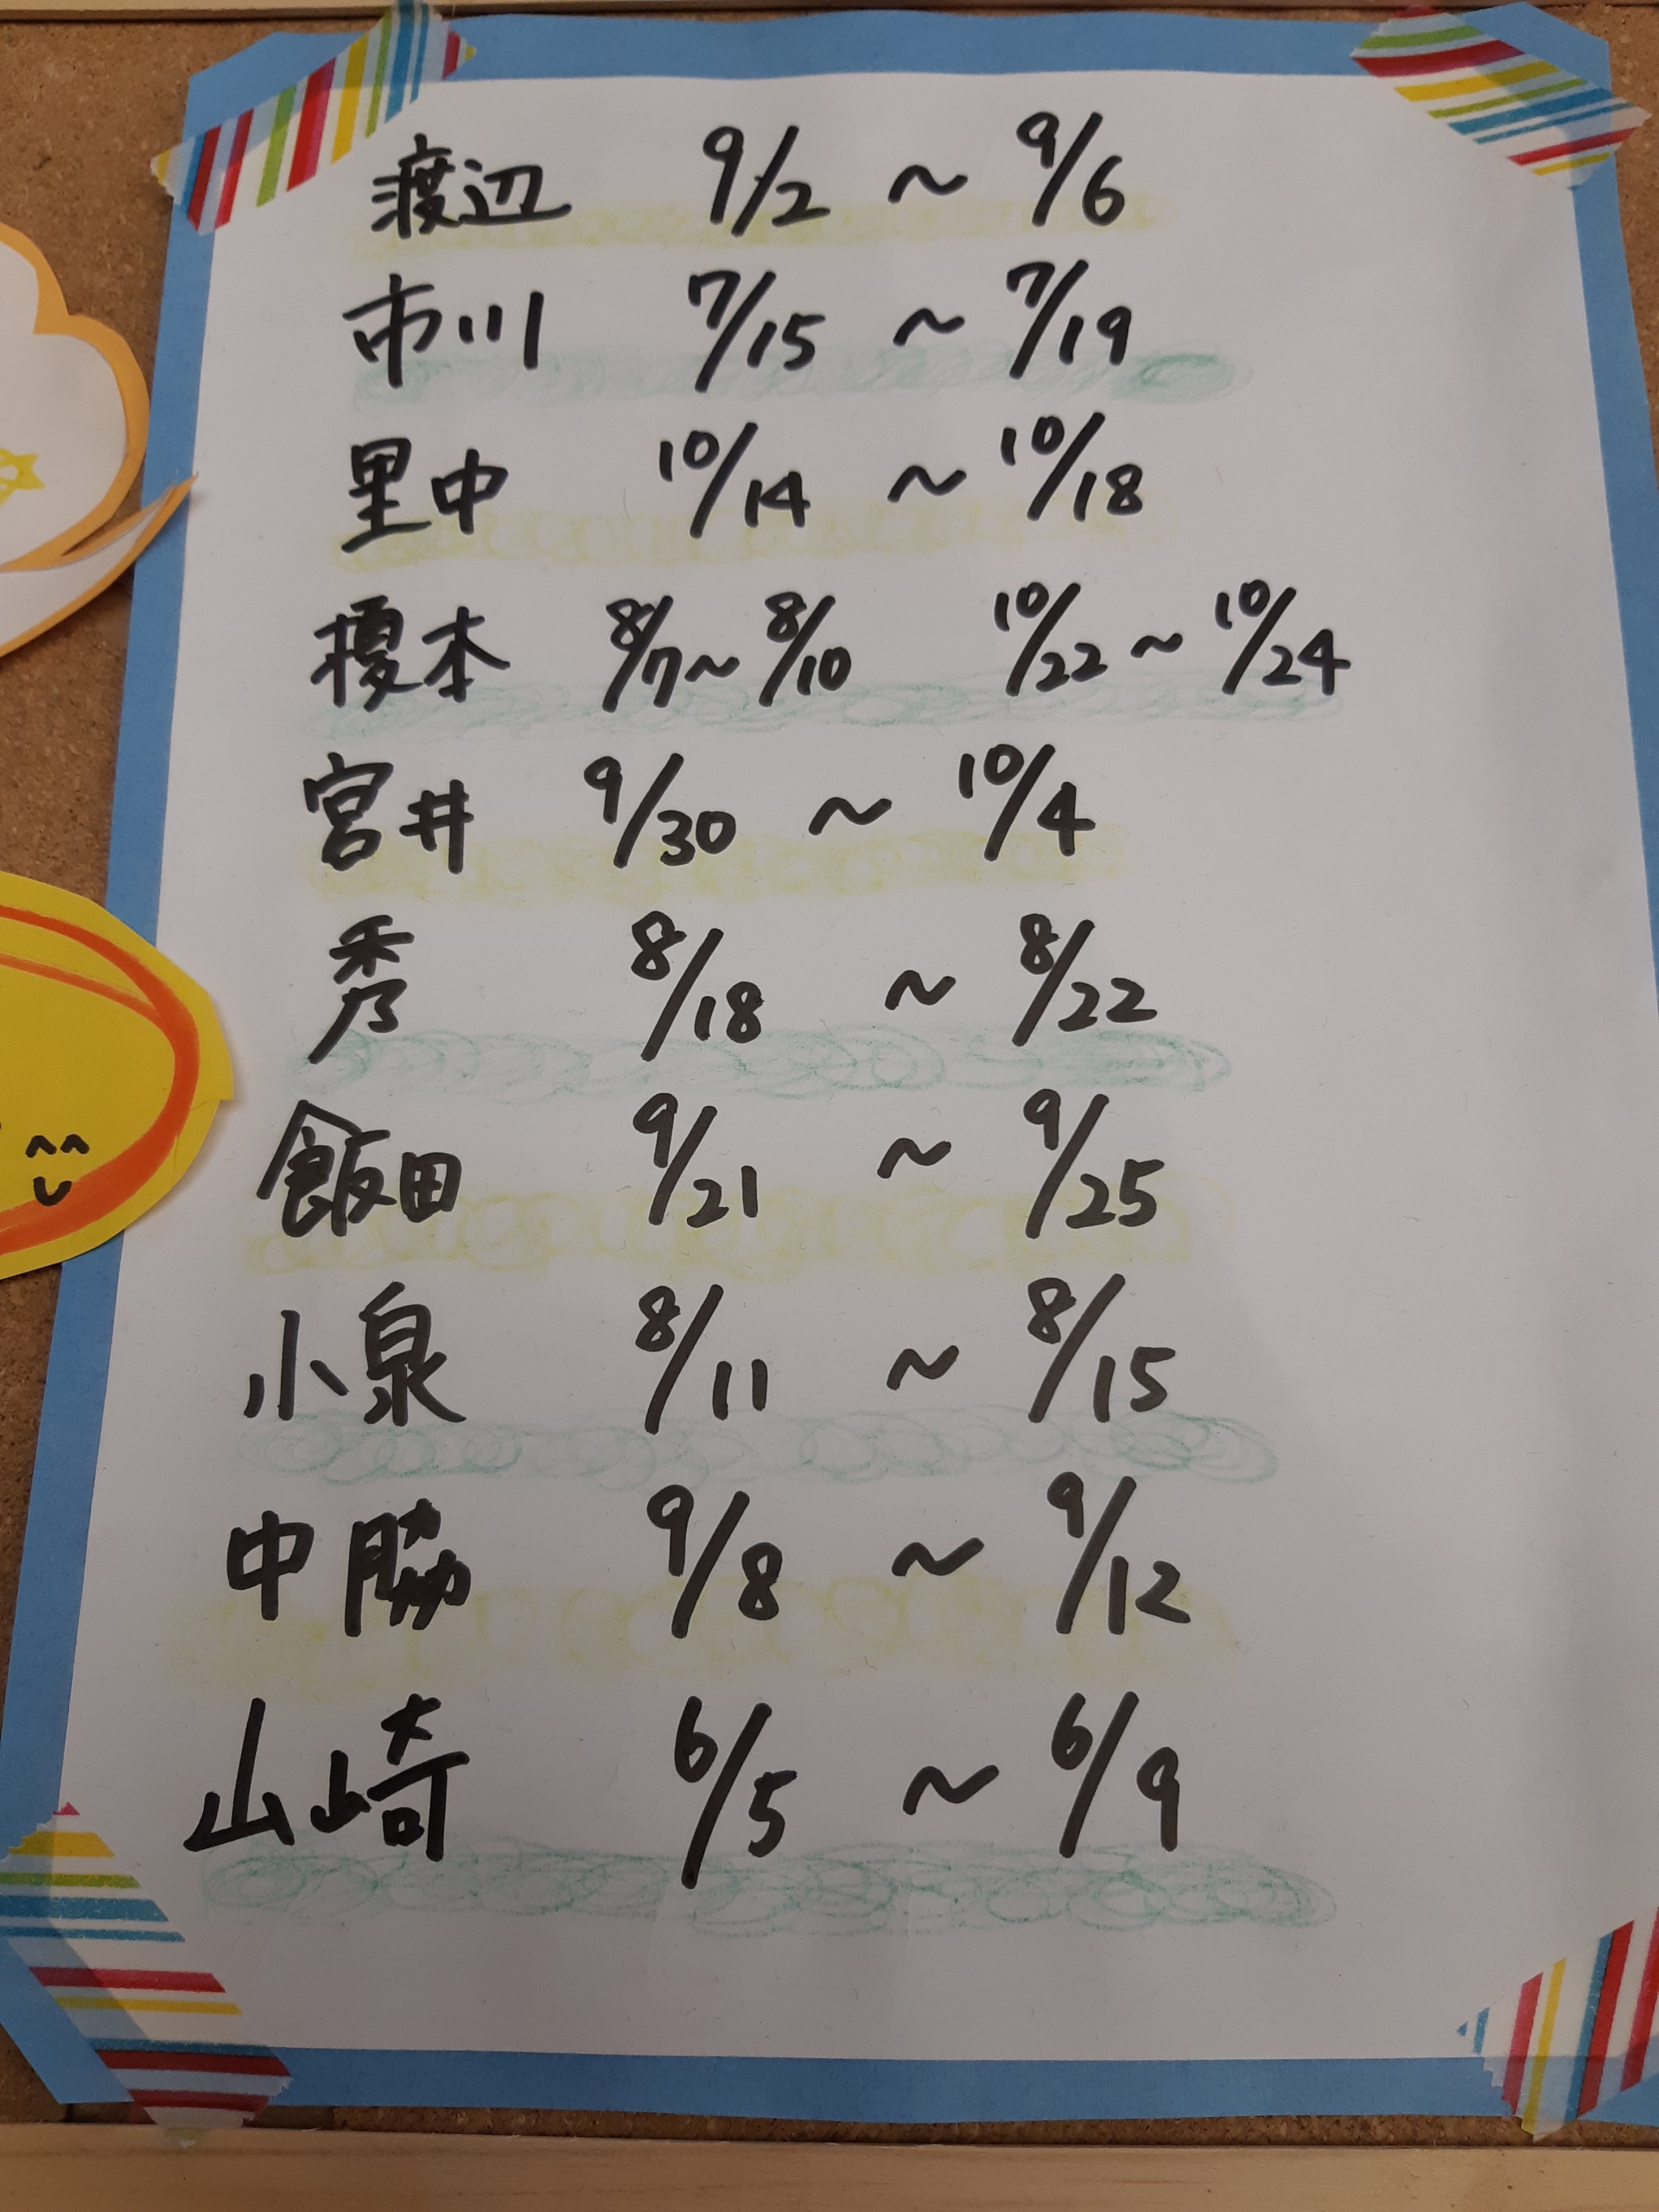 渡辺 9/2 ~ 9/6
市川 7/15 ~ 7/19
里中 10/14 ~ 10/18
榎本 8/7~ 8/10 10/22 ~ 10/24
宮井 9/30 ~ 10/4
秀 8/18 ~ 8/22
飯田 9/21 ~ 9/25
小泉 8/11 ~ 8/15
中脇 9/8 ~ 9/12
山崎 6/5 ~ 6/9